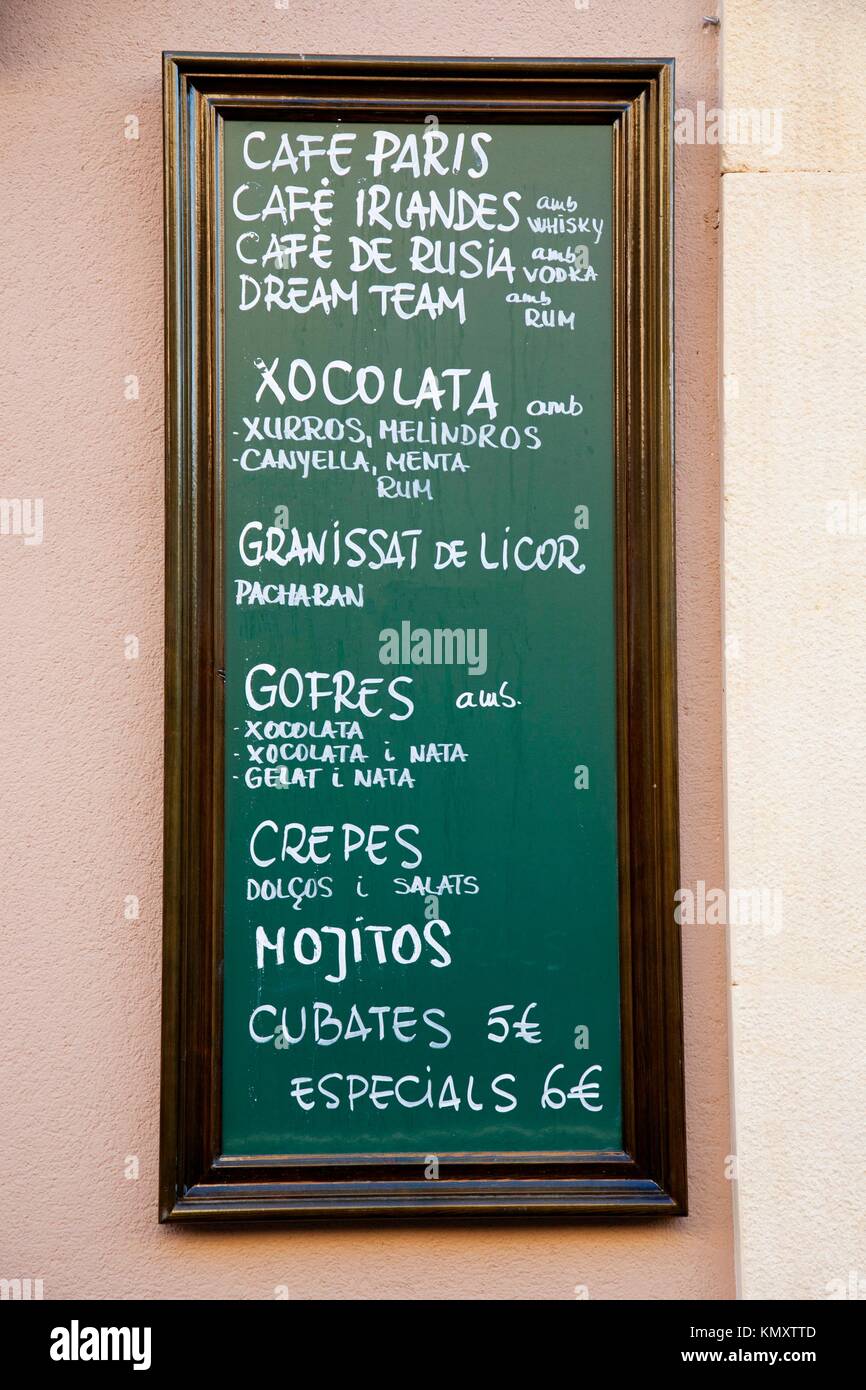 CAFE PARIS
CAFĖ IRLANDES amb WHISKY
CAFĖ DE RUSIA amb VODKA
DREAM TEAM amb RUM
XOCOLATA amb
- XURROS, MELINDROS
- CANYELLA, MENTA
RUM
GRANISSAT DE LICOR
PACHARAN
GOFRES amb.
- XOCOLATA
- XOCOLATA i NATA
- GELAT i NATA
CREPES
DOLÇOS i SALATS
MOJITOS
CUBATES 5€
ESPECIALS 6€
alamy
Image ID: KMXTTD
www.alamy.com